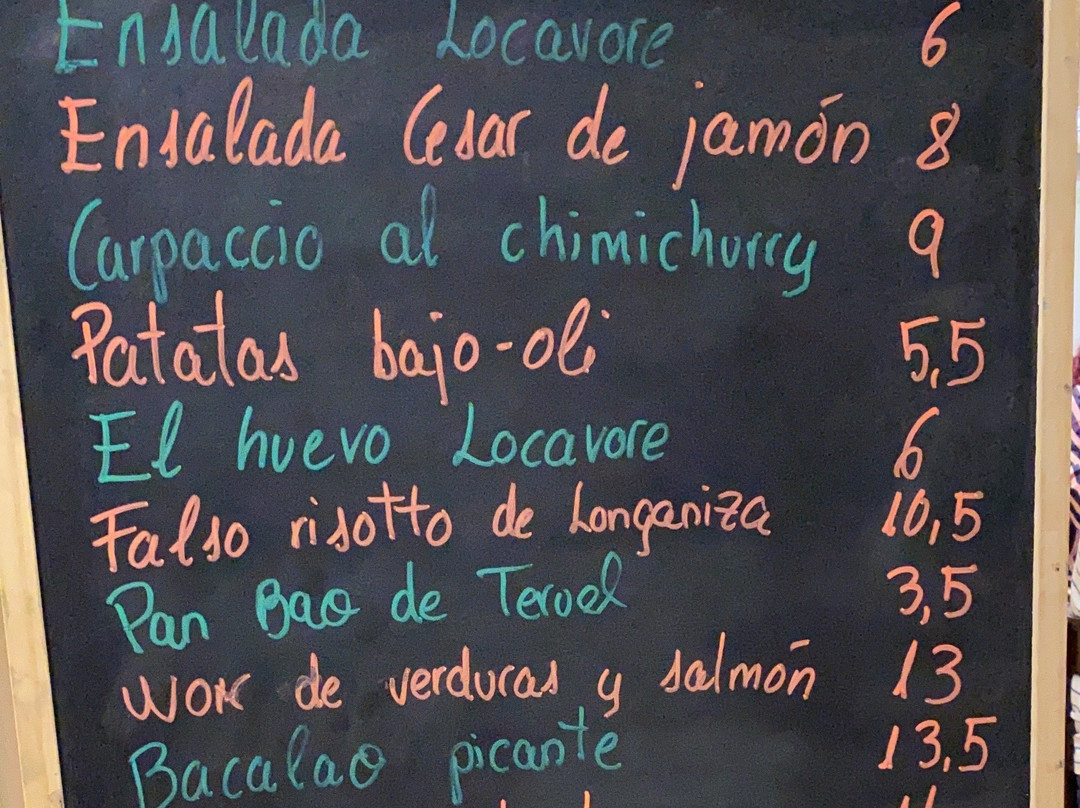 Ensalada Locavore 6
Ensalada Cesar de jamón 8
Carpaccio al chimichurry 9
Patatas bajo-oli 5,5
El huevo Locavore 6
Falso risotto de Longaniza 10,5
Pan Bao de Teruel 3,5
Wok de verduras y salmón 13
Bacalao picante 13,5